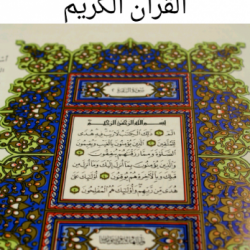 القرآن الكريم
سورة البقرة
بسم الله الرحمن الرحيم
الم ذلك الكتاب لا ريب فيه هدى
للمتقين الذين يؤمنون بالغيب ويقيمون
الصلوة ومما رزقنهم ينفقون
والذين يؤمنون بما أنزل إليك وما أنزل من
قبلك وبالآخرة هم يوقنون أولئك على
هدى من ربهم وأولئك هم المفلحون